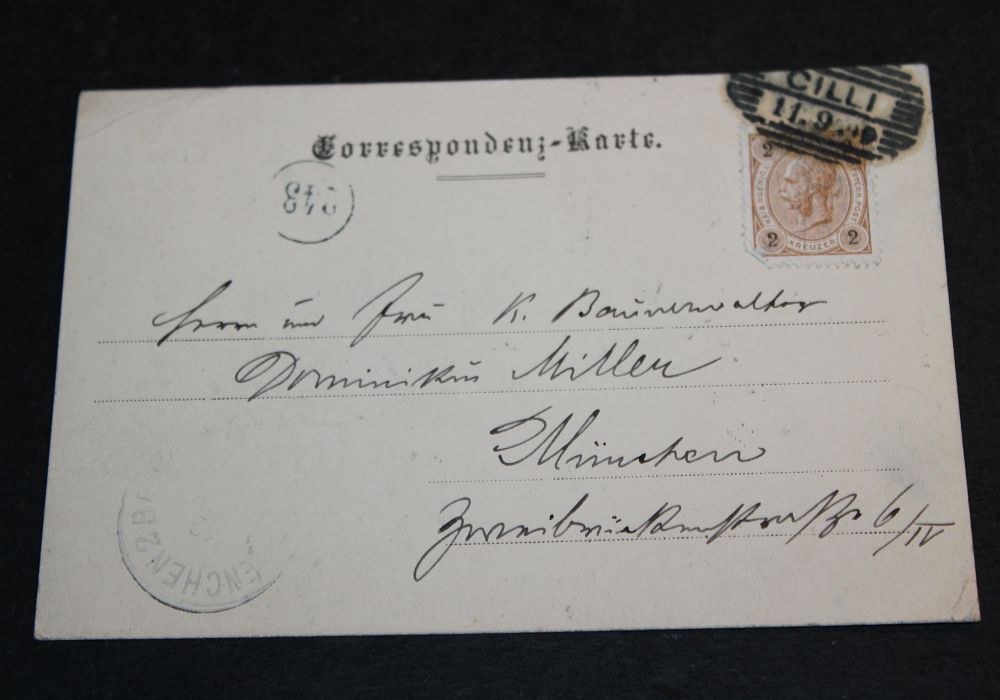 Correspondenz-Karte.
CILLI
11.9.
2
2 KREUZER 2
243
Herrn und Frau K. Bauverwalter
Dominikus Miller
München
Zweibrückenstraße 6/IV
ENCHEN 2 B
12